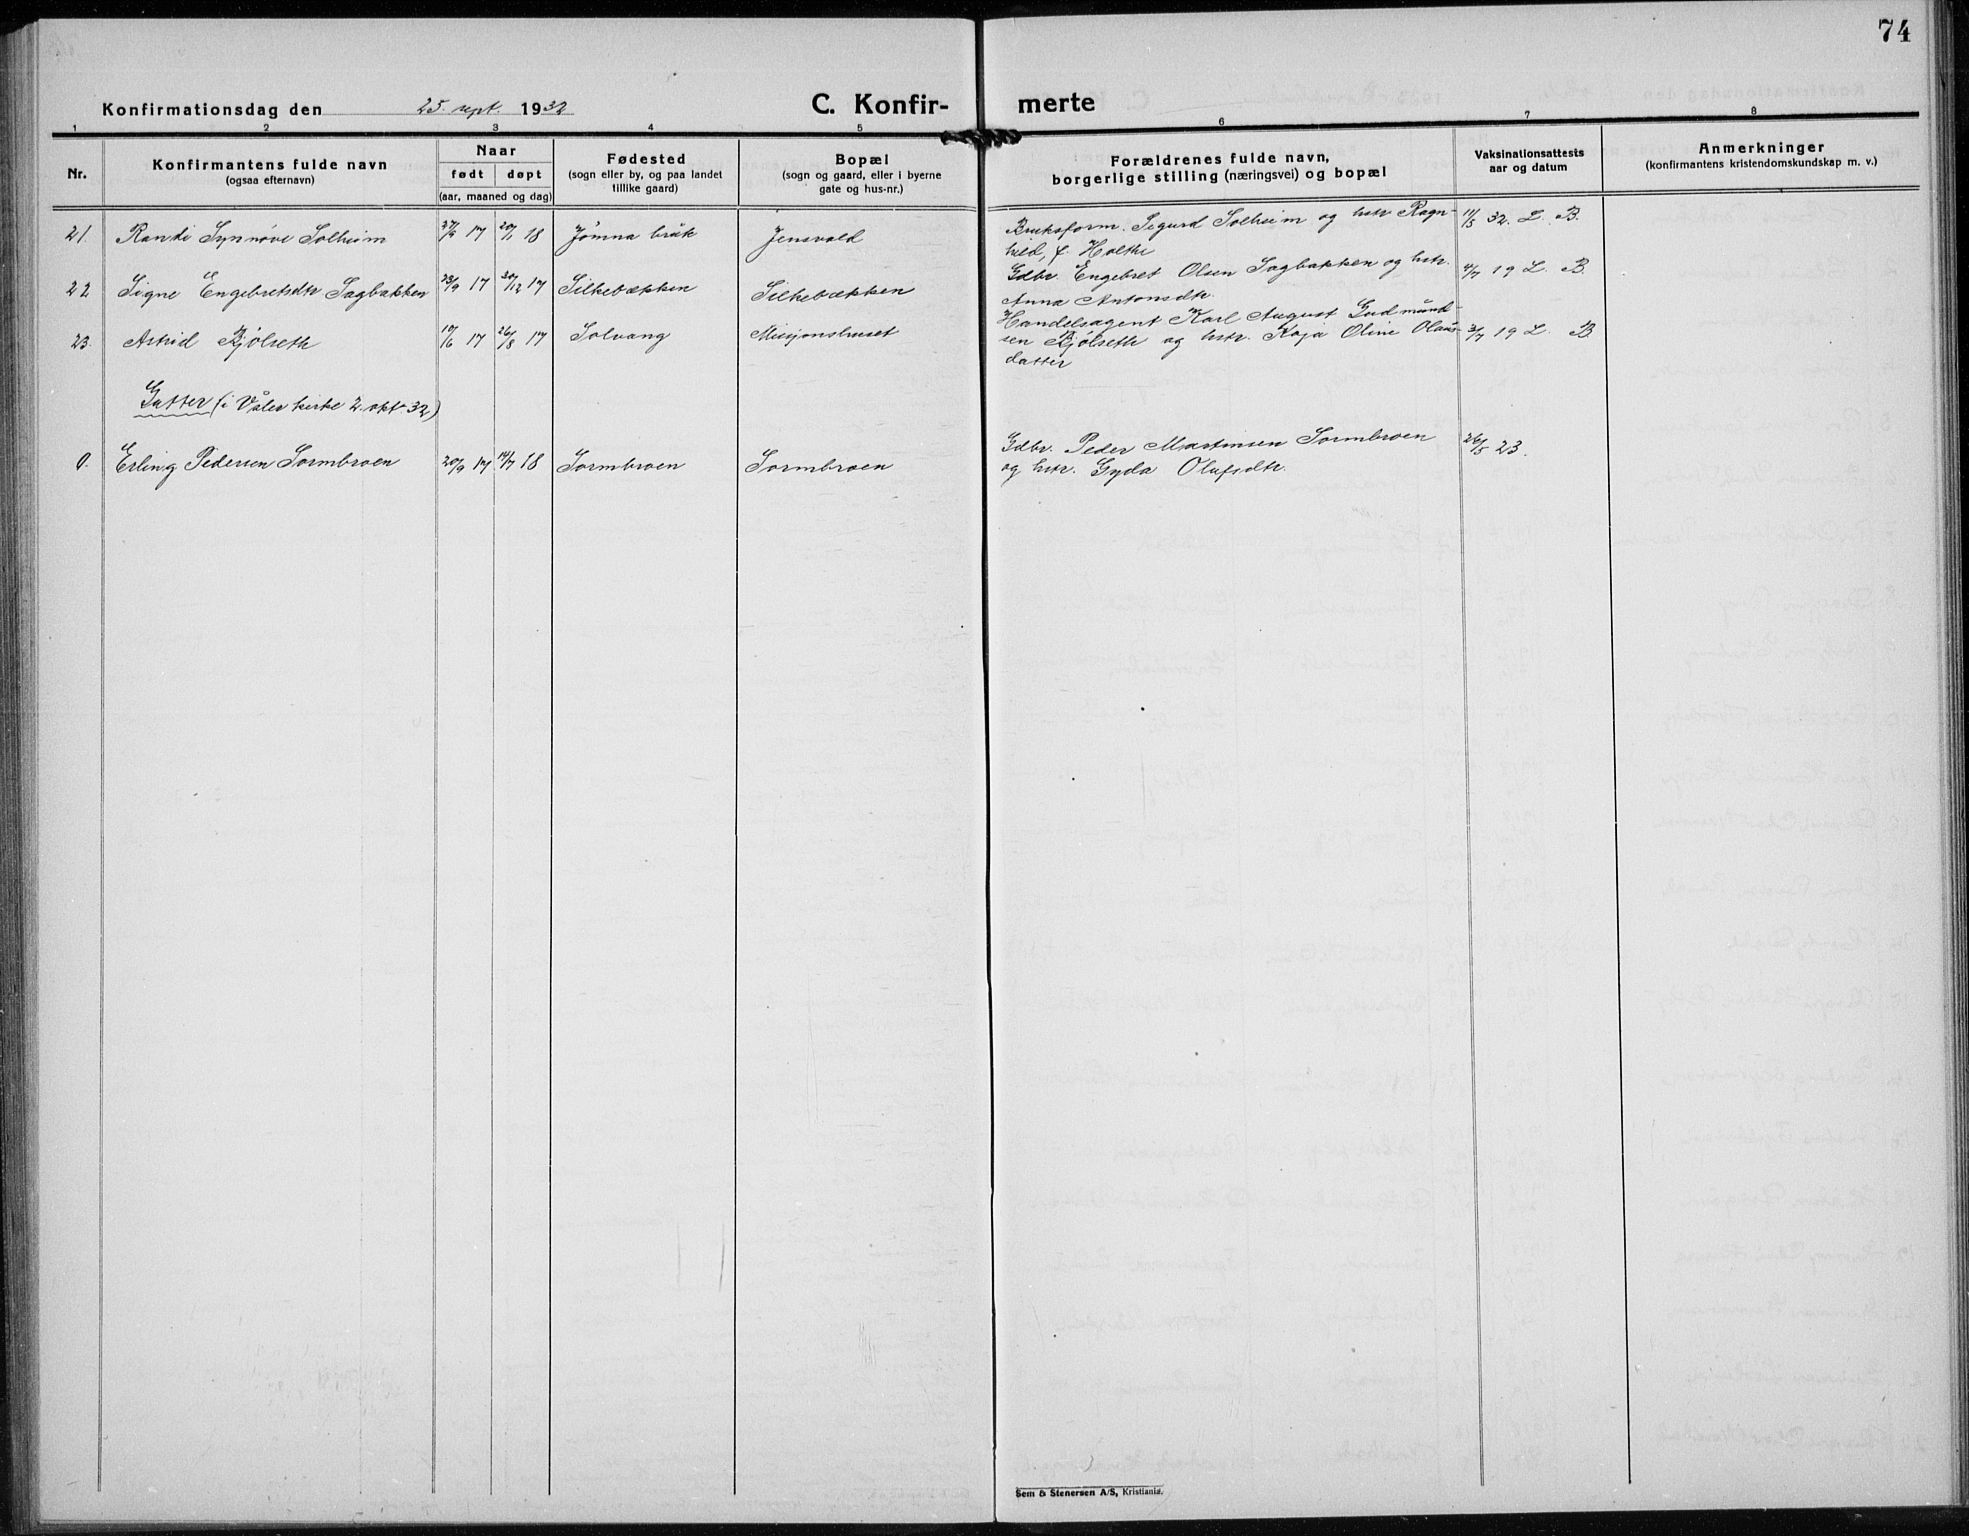 74
Konfirmationsdag den 25. sept. 1932
C. Konfir-
merte
1 2 3 4 5 6 7 8
Nr.
Konfirmantens fulde navn
(ogsaa efternavn)
Naar
født døpt
(aar, maaned og dag)
Fødested
(sogn eller by, og paa landet
tillike gaard)
Bopæl
(sogn og gaard, eller i byerne
gate og hus-nr.)
Forældrenes fulde navn,
borgerlige stilling (næringsvei) og bopæl
Vaksinationsattests
aar og datum
Anmerkninger
(konfirmantens kristendomskundskap m. v.)
21. Randi Synnøve Solheim 17 20/1 18 Jømna bruk Jensvold
Bruksform. Sigurd Solheim og hstr Ragn-
hild, f. Holthe
11/5 32. L. B.
22 Signe Engebretsdtr Sagbakken 23/9 17 30/12 17 Silkebækken Silkebækken
Gdbr. Engebret Olsen Sagbakken og hstr.
Anna Antonsdtr.
4/7 19 L. B.
23. Astrid Bjølseth 10/6 17 26/8 17 Solvang Misjonshuset
Handelsagent Karl August Gudmund-
sen Bjølseth og hstr. Kaja Oline Olaus-
datter
3/7 19 L. B
Gutter (i Våler kirke 2. okt. 32)
Erling Pedersen Sormbroen 20/9 17 14/7 18 Sormbroen Sormbroen
Gdbr. Peder Martinsen Sormbroen
og hstr. Gyda Olufsdtr.
26/5 23.
Sem & Stenersen A/S, Kristiania.